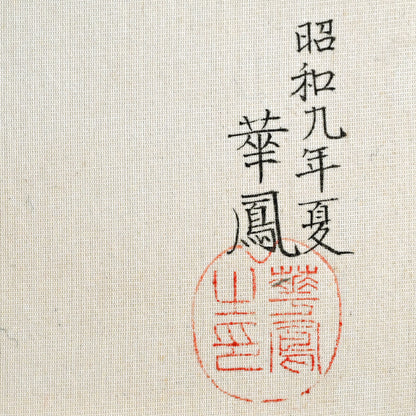 昭和九年夏
華鳳
華鳳
之印